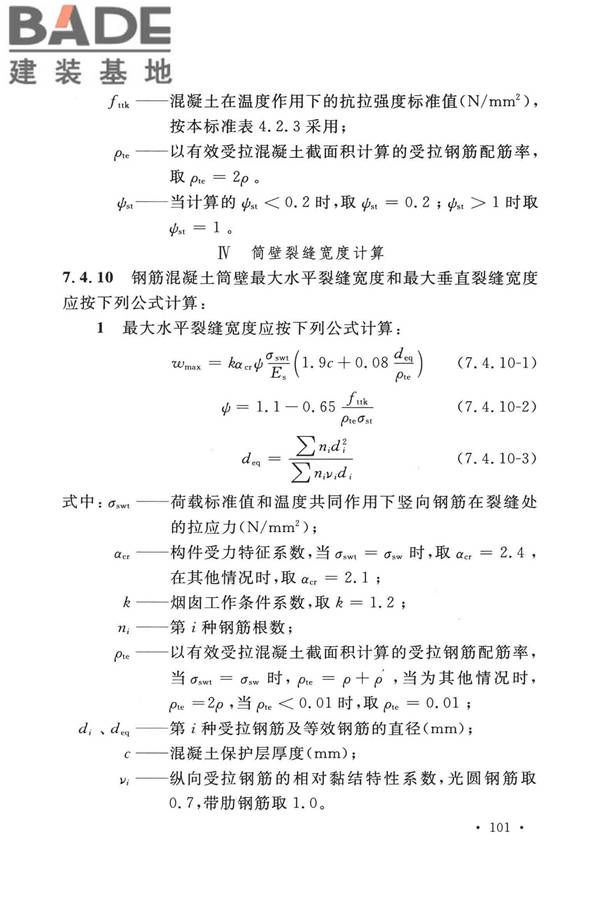 BADE
建装基地
fttk ——混凝土在温度作用下的抗拉强度标准值(N/mm²),
按本标准表 4.2.3 采用;
ρte ——以有效受拉混凝土截面积计算的受拉钢筋配筋率,
取 ρte = 2ρ 。
ψst ——当计算的 ψst < 0.2 时,取 ψst = 0.2 ; ψst > 1 时取
ψst = 1 。
Ⅳ 筒壁裂缝宽度计算
7.4.10 钢筋混凝土筒壁最大水平裂缝宽度和最大垂直裂缝宽度
应按下列公式计算:
1 最大水平裂缝宽度应按下列公式计算:
wmax = kαcrψ σswt/Es (1.9c + 0.08 deq/ρte) (7.4.10-1)
ψ = 1.1 − 0.65 fttk/ρteσst (7.4.10-2)
deq = ∑nidi²/∑niνidi (7.4.10-3)
式中: σswt ——荷载标准值和温度共同作用下竖向钢筋在裂缝处
的拉应力(N/mm²);
αcr ——构件受力特征系数,当 σswt = σsw 时,取 αcr = 2.4 ,
在其他情况时,取 αcr = 2.1 ;
k ——烟囱工作条件系数,取 k = 1.2 ;
ni ——第 i 种钢筋根数;
ρte ——以有效受拉混凝土截面积计算的受拉钢筋配筋率,
当 σswt = σsw 时, ρte = ρ + ρ′ ,当为其他情况时,
ρte =2ρ ,当 ρte < 0.01 时,取 ρte = 0.01 ;
di 、deq ——第 i 种受拉钢筋及等效钢筋的直径(mm);
c ——混凝土保护层厚度(mm);
νi ——纵向受拉钢筋的相对黏结特性系数,光圆钢筋取
0.7,带肋钢筋取 1.0。
• 101 •